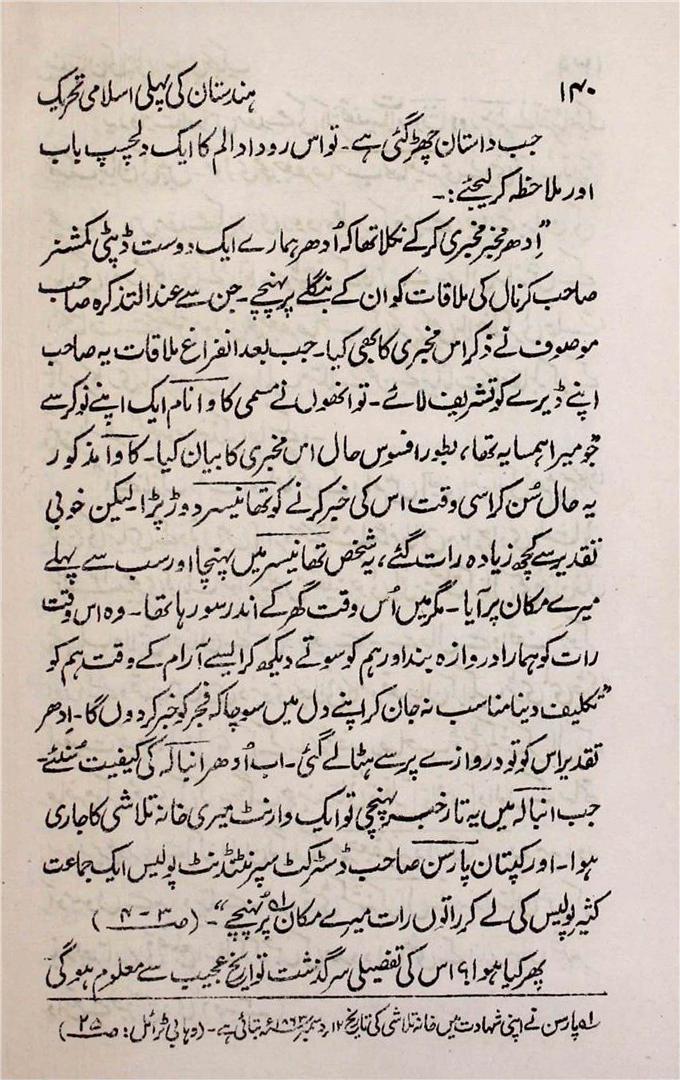 ۱۴۰ ہندستان کی پہلی اسلامی تحریک
جب داستان چھڑ گئی ہے۔ تو اس روداد الم کا ایک دلچسپ باب
اور ملاحظہ کر لیجئے:۔
"اِدھر مخبر مخبری کر کے نکلا تھا کہ اُدھر ہمارے ایک دوست ڈپٹی کمشنر
صاحب کرنال کی ملاقات کو ان کے بنگلے پر پہنچے۔ جن سے عند التذکرہ صاحب
موصوف نے ذکر اس مخبری کا بھی کیا۔ جب بعد انفراغ ملاقات یہ صاحب
اپنے ڈیرے کو تشریف لائے۔ تو انھوں نے مسمی کاوا نام ایک اپنے نوکر سے
"جو میرا ہمسایہ تھا، بطور افسوس حال اس مخبری کا بیان کیا۔ کاوا مذکور
یہ حال سُن کر اسی وقت اس کی خبر کرنے کو تھانیسر دوڑ پڑا۔ لیکن خوبی
تقدیر سے کچھ زیادہ رات گئے، یہ شخص تھانیسر میں پہنچا اور سب سے پہلے
میرے مکان پر آیا۔ مگر میں اُس وقت گھر کے اندر سو رہا تھا۔ وہ اس وقت
رات کو ہمارا دروازہ بند اور ہم کو سوتے دیکھ کر ایسے آرام کے وقت ہم کو
"تکلیف دینا مناسب نہ جان کر اپنے دل میں سوچا کہ فجر کو خبر کر دوں گا۔ اِدھر
تقدیر اس کو تو دروازے پر سے ہٹا لے گئی۔ اب اُدھر انبالہ کی کیفیت سُنئے۔
جب انبالہ میں یہ تار خبر پہنچی تو ایک وارنٹ میری خانہ تلاشی کا جاری
ہوا۔ اور کپتان پارسن صاحب ڈسٹرکٹ سپرنٹنڈنٹ پولیس ایک جماعت
کثیر پولیس کی لے کر راتوں رات میرے مکان پر پہنچے"۔ (ص ۳-۴)
پھر کیا ہوا؟ اس کی تفصیلی سرگذشت تواریخ عجیب سے معلوم ہو گی
لہ پارسن نے اپنی شہادت میں خانہ تلاشی کی تاریخ ۱۲ر دسمبر ۱۸۶۳ء بتائی ہے۔ (وہابی ٹرائل: ص ۲۵)